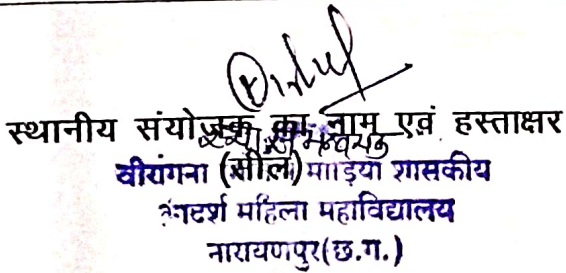 स्थानीय संयोजक का नाम एवं हस्ताक्षर
वीरांगना (सील) माड़िया शासकीय
आदर्श महिला महाविद्यालय
नारायणपुर(छ.ग.)